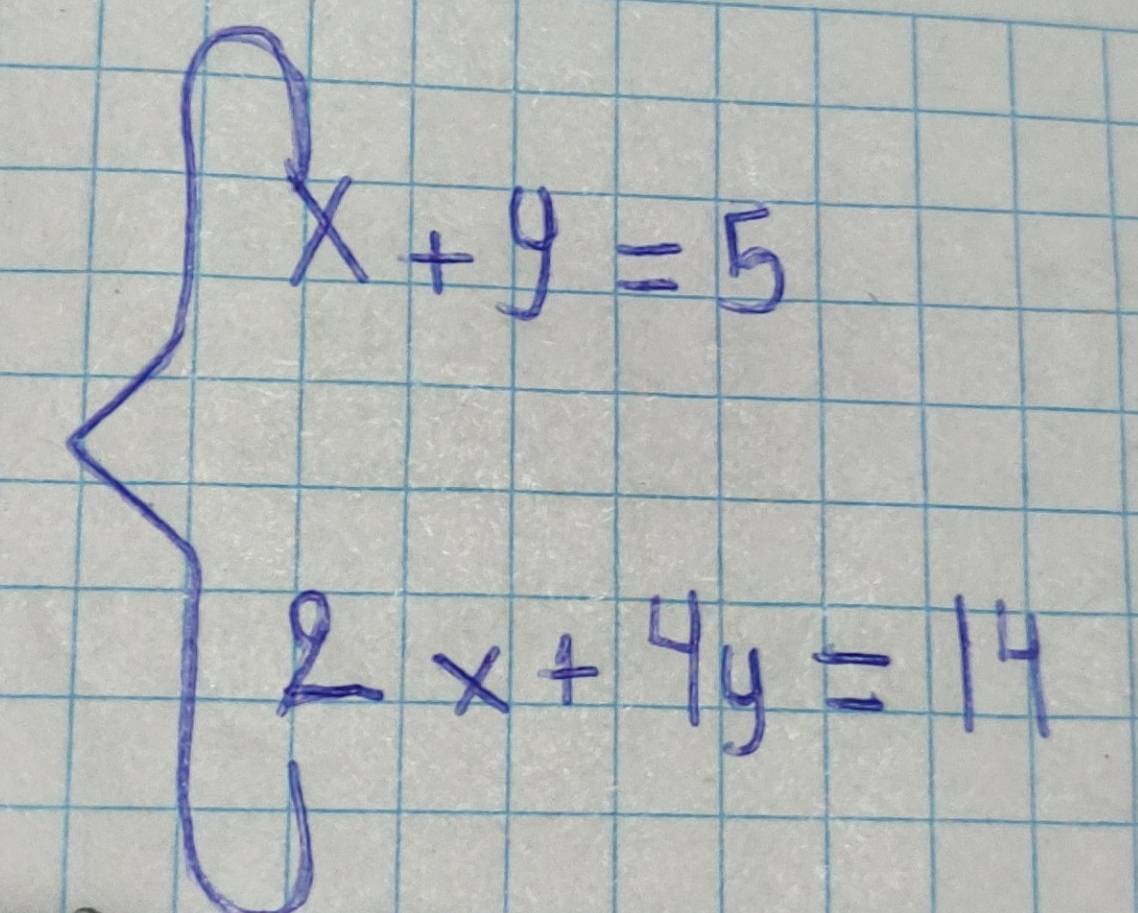 x + y = 5
2 x + 4y = 14